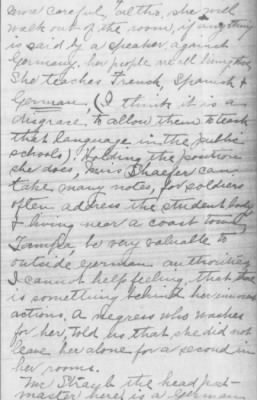 more careful, altho, she will
walk out of the room, if anything
is said by a speaker against
Germany, her people are all living there.
She teaches French, Spanish &
German, (I think it is a
disgrace to allow them to teach
that language in the public
schools). Holding the position
she does, Miss Draefer can
take many notes, for soldiers
often address the student body
& living near a coast town,
Tampa, be very valuable to
outside German authorities
I cannot help feeling, that there
is something behind her
actions. A negress who washes
for her, told us that she did not
leave her alone for a second in
her rooms.
Mr Straub the head post-
master here is a German